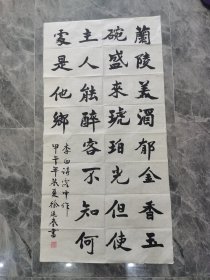 蘭陵美濁郁金香玉
碗盛來琥珀光但使
主人能醉客不知何
處是他鄉
李白詩客中作
甲午年 夏徐 書